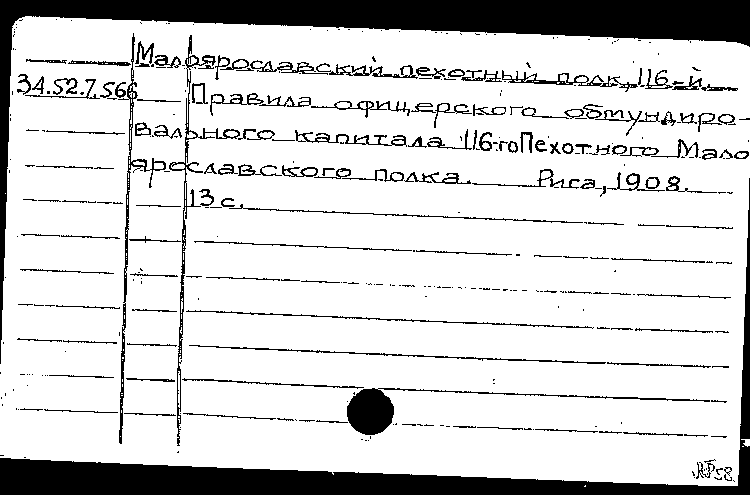 Малоярославский пехотный полк, 116-й.
34.52.7.566 Правила офицерского обмундиро-
вального капитала 116-го Пехотного Мало
ярославского полка. Рига, 1908.
13 с.